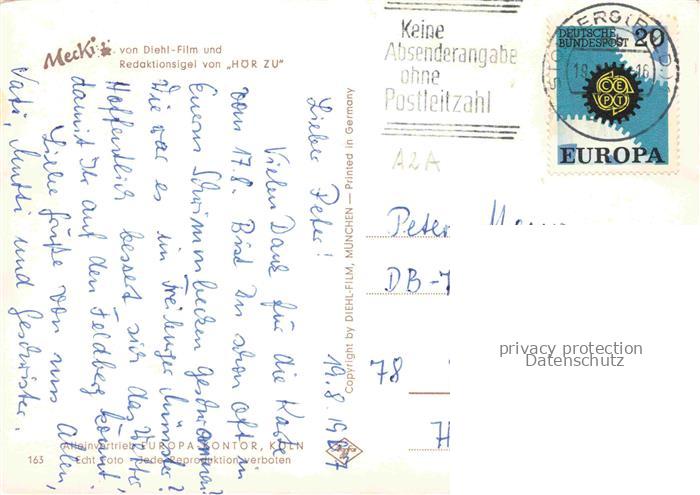 Mecki von Diehl-Film und
Redaktionsigel von „HÖR ZU"
Keine
Absenderangabe
ohne
Postleitzahl
DEUTSCHE
BUNDESPOST 20
CEPT
EUROPA
A2A
19.8.1967
Lieber Peter!
Vielen Dank für die Karte
vom 17.8. Bist Du schon oft in
Euerm Schwimmbecken geschwommen?
Wie war es im Freiburger Münster?
Hoffentlich bessert sich das Wetter
damit Ihr auf den Feldberg könnt!
Liebe Grüße von uns allen,
Vati, Mutti und Geschwister.
Copyright by DIEHL-FILM, MÜNCHEN — Printed in Germany
Peter
DB-
78
H
privacy protection
Datenschutz
Alleinvertrieb EUROPA-KONTOR, KÖLN
163 Echt Foto - Jede Reproduktion verboten